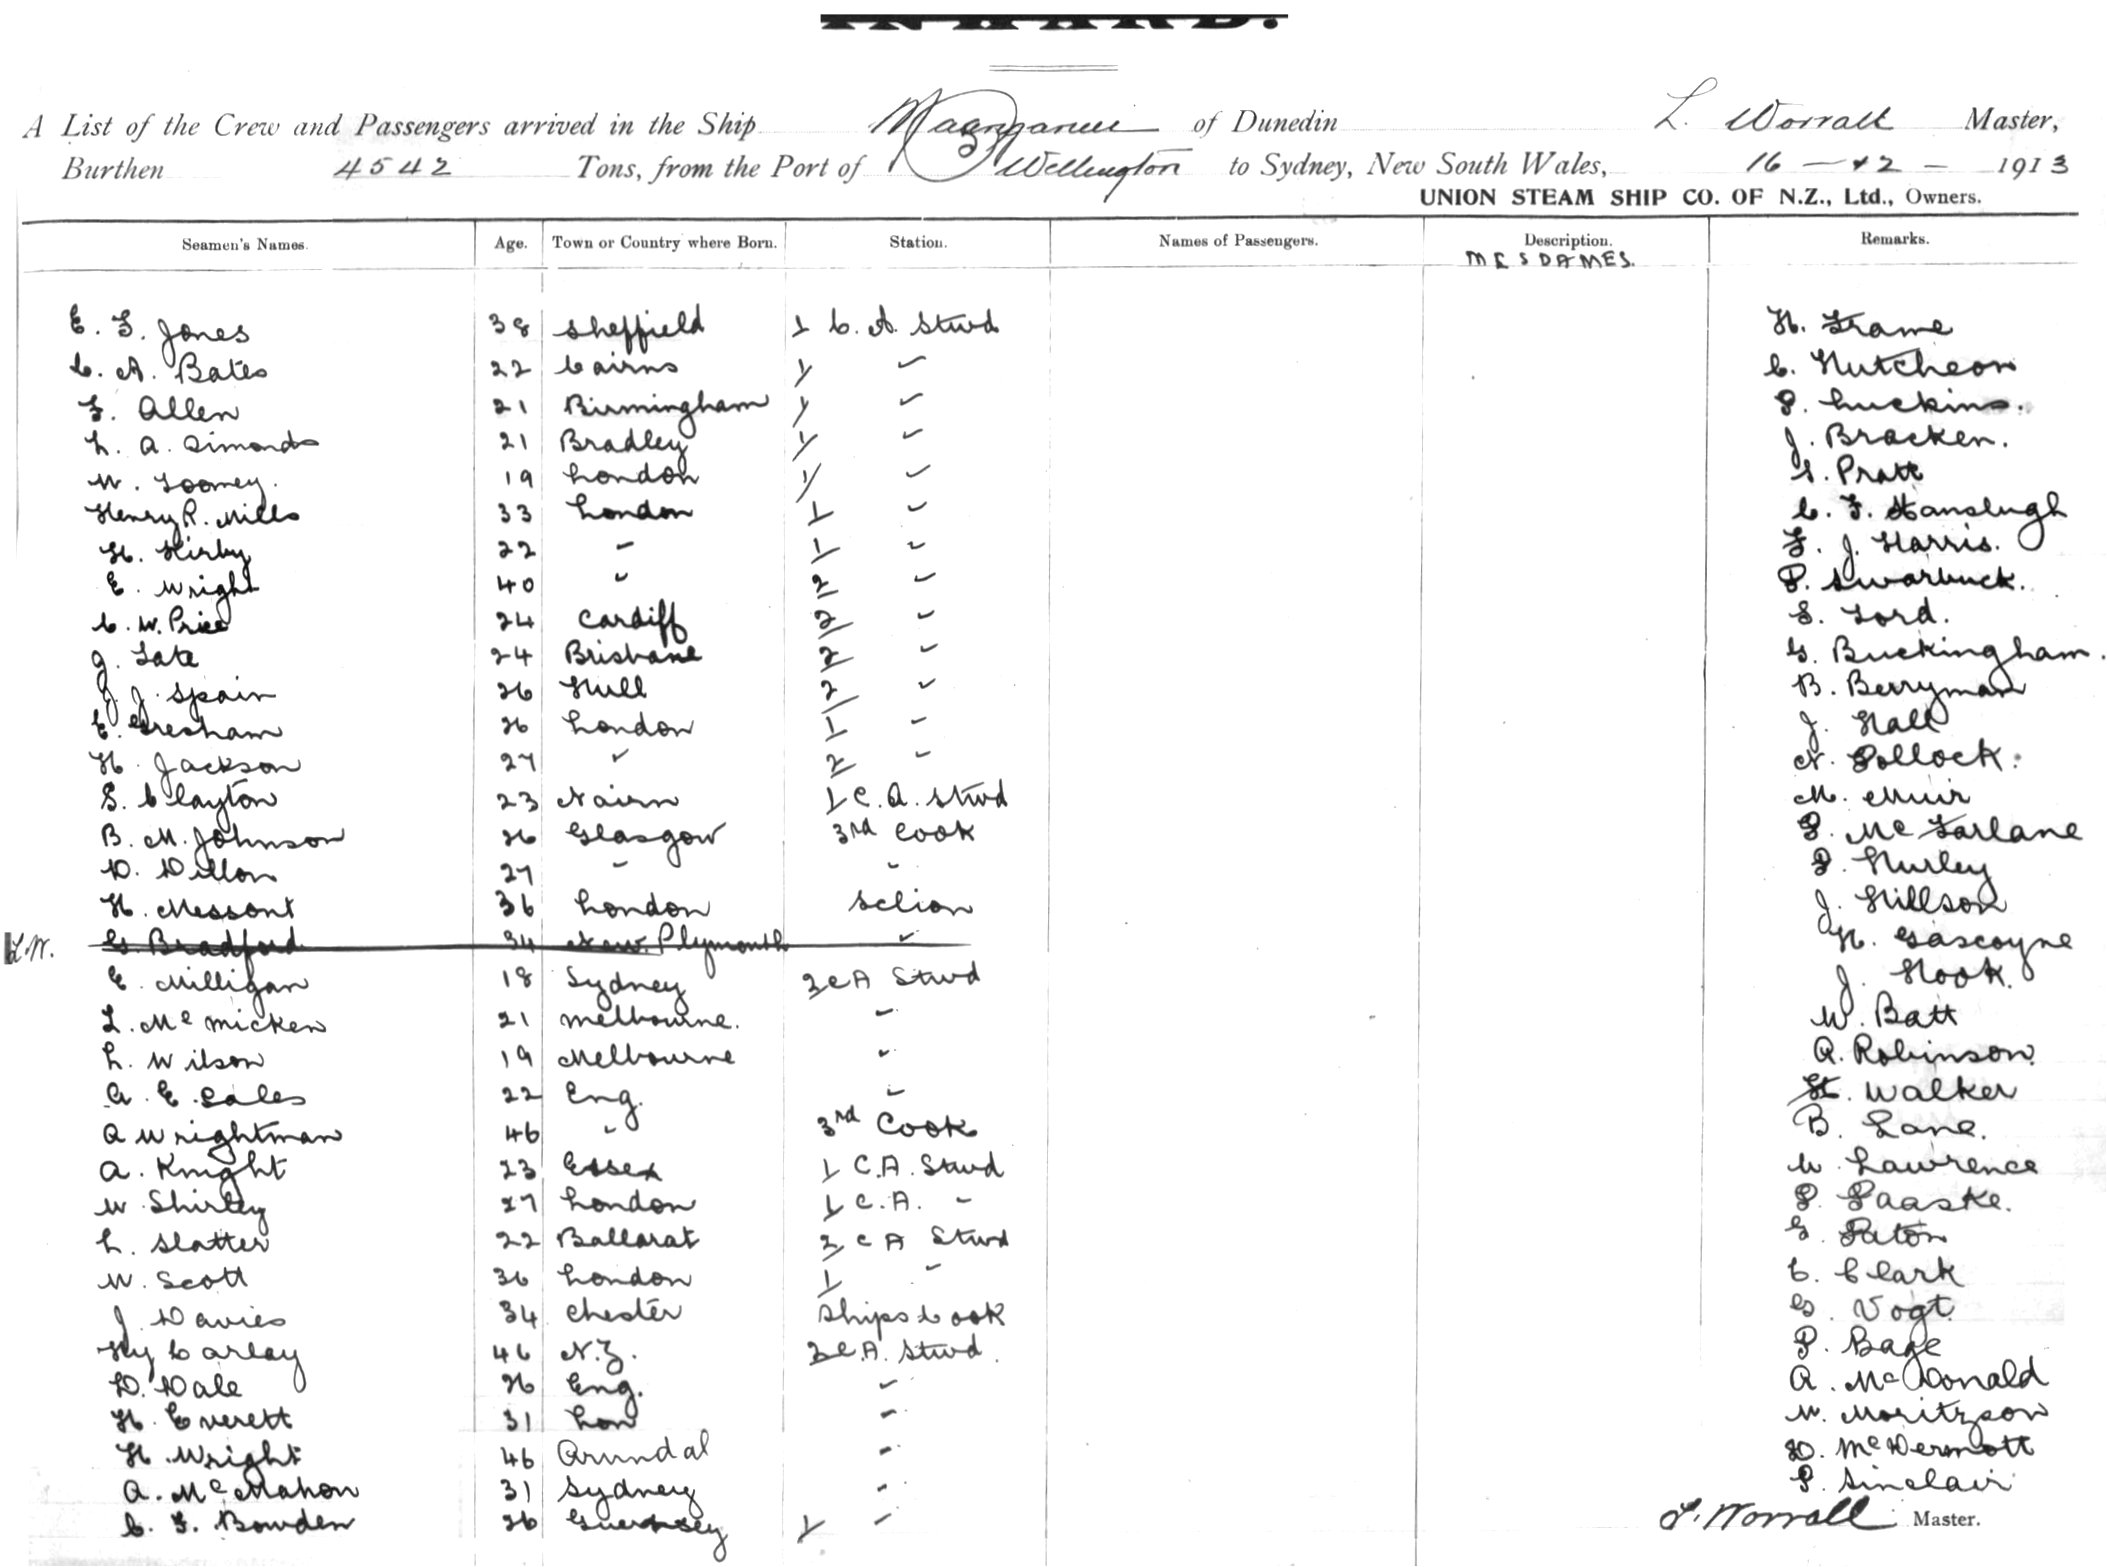 INWARD.
A List of the Crew and Passengers arrived in the Ship Maunganui of Dunedin L. Worrall Master,
Burthen 4542 Tons, from the Port of Wellington to Sydney, New South Wales, 16 - 12 - 1913
UNION STEAM SHIP CO. OF N.Z., Ltd., Owners.
Seamen's Names. Age. Town or Country where Born. Station. Names of Passengers. Description. Remarks.
MESDAMES.
E. F. Jones 38 Sheffield 1 C. A. Stwd H. Frame
C. A. Bates 22 Cairns 1 " C. Hutcheon
F. Allen 21 Birmingham 1 " P. Luckins.
L. A. Simonds 21 Bradley 1 " J. Bracken.
W. Toomey. 19 London 1 " S. Pratt
Henry R. Mills 33 London 1 " C. F. Hanslugh
H. Kirby 22 " 1 " F. J. Harris.
E. Wright 40 " 2 " P. Swarbuck.
C. W. Price 24 Cardiff 2 " S. Lord.
J. Tate 24 Brisbane 2 " G. Buckingham.
J. J. Spain 26 Hull 2 " B. Berryman
E. Gresham 26 London 1 " J. Hall
H. Jackson 27 " 2 " N. Pollock.
S. Clayton 23 Nairn 1 C. A. Stwd M. Muir
B. M. Johnson 26 Glasgow 3rd Cook P. McFarlane
D. Dillon 27 " " P. Hurley
H. Messont 36 London Sclion J. Hillson
L.W. G. Bradford 34 New Plymouth " H. Gascoyne
E. Milligan 18 Sydney 2 C A Stwd J. Hook.
L. McMicken 21 Melbourne. " W. Batt
L. Wilson 19 Melbourne " A. Robinson.
A. E. Sales 22 Eng. " H. Walker
A Wrightman 46 " 3rd Cook B. Lane.
A. Knight 23 Essex 1 C.A. Stwd W Lawrence
W Shirley 27 London 1 C.A. " P. Paaske.
L. Slatter 22 Ballarat 2 C A Stwd G. Paton
W. Scott 36 London 1 " C. Clark
J. Davies 34 Chester Ships Cook G. Vogt.
Hy Carley 46 N.Z. 2 C.A. Stwd. P. Bage
D. Dale 26 Eng. " A. McDonald
H. Everett 31 Lon " W. Moritzson
H. Wright 46 Arundal " D. McDermott
A. McMahon 31 Sydney " P. Sinclair
C. F. Bowden 26 Guernsey 1 " L. Worrall Master.